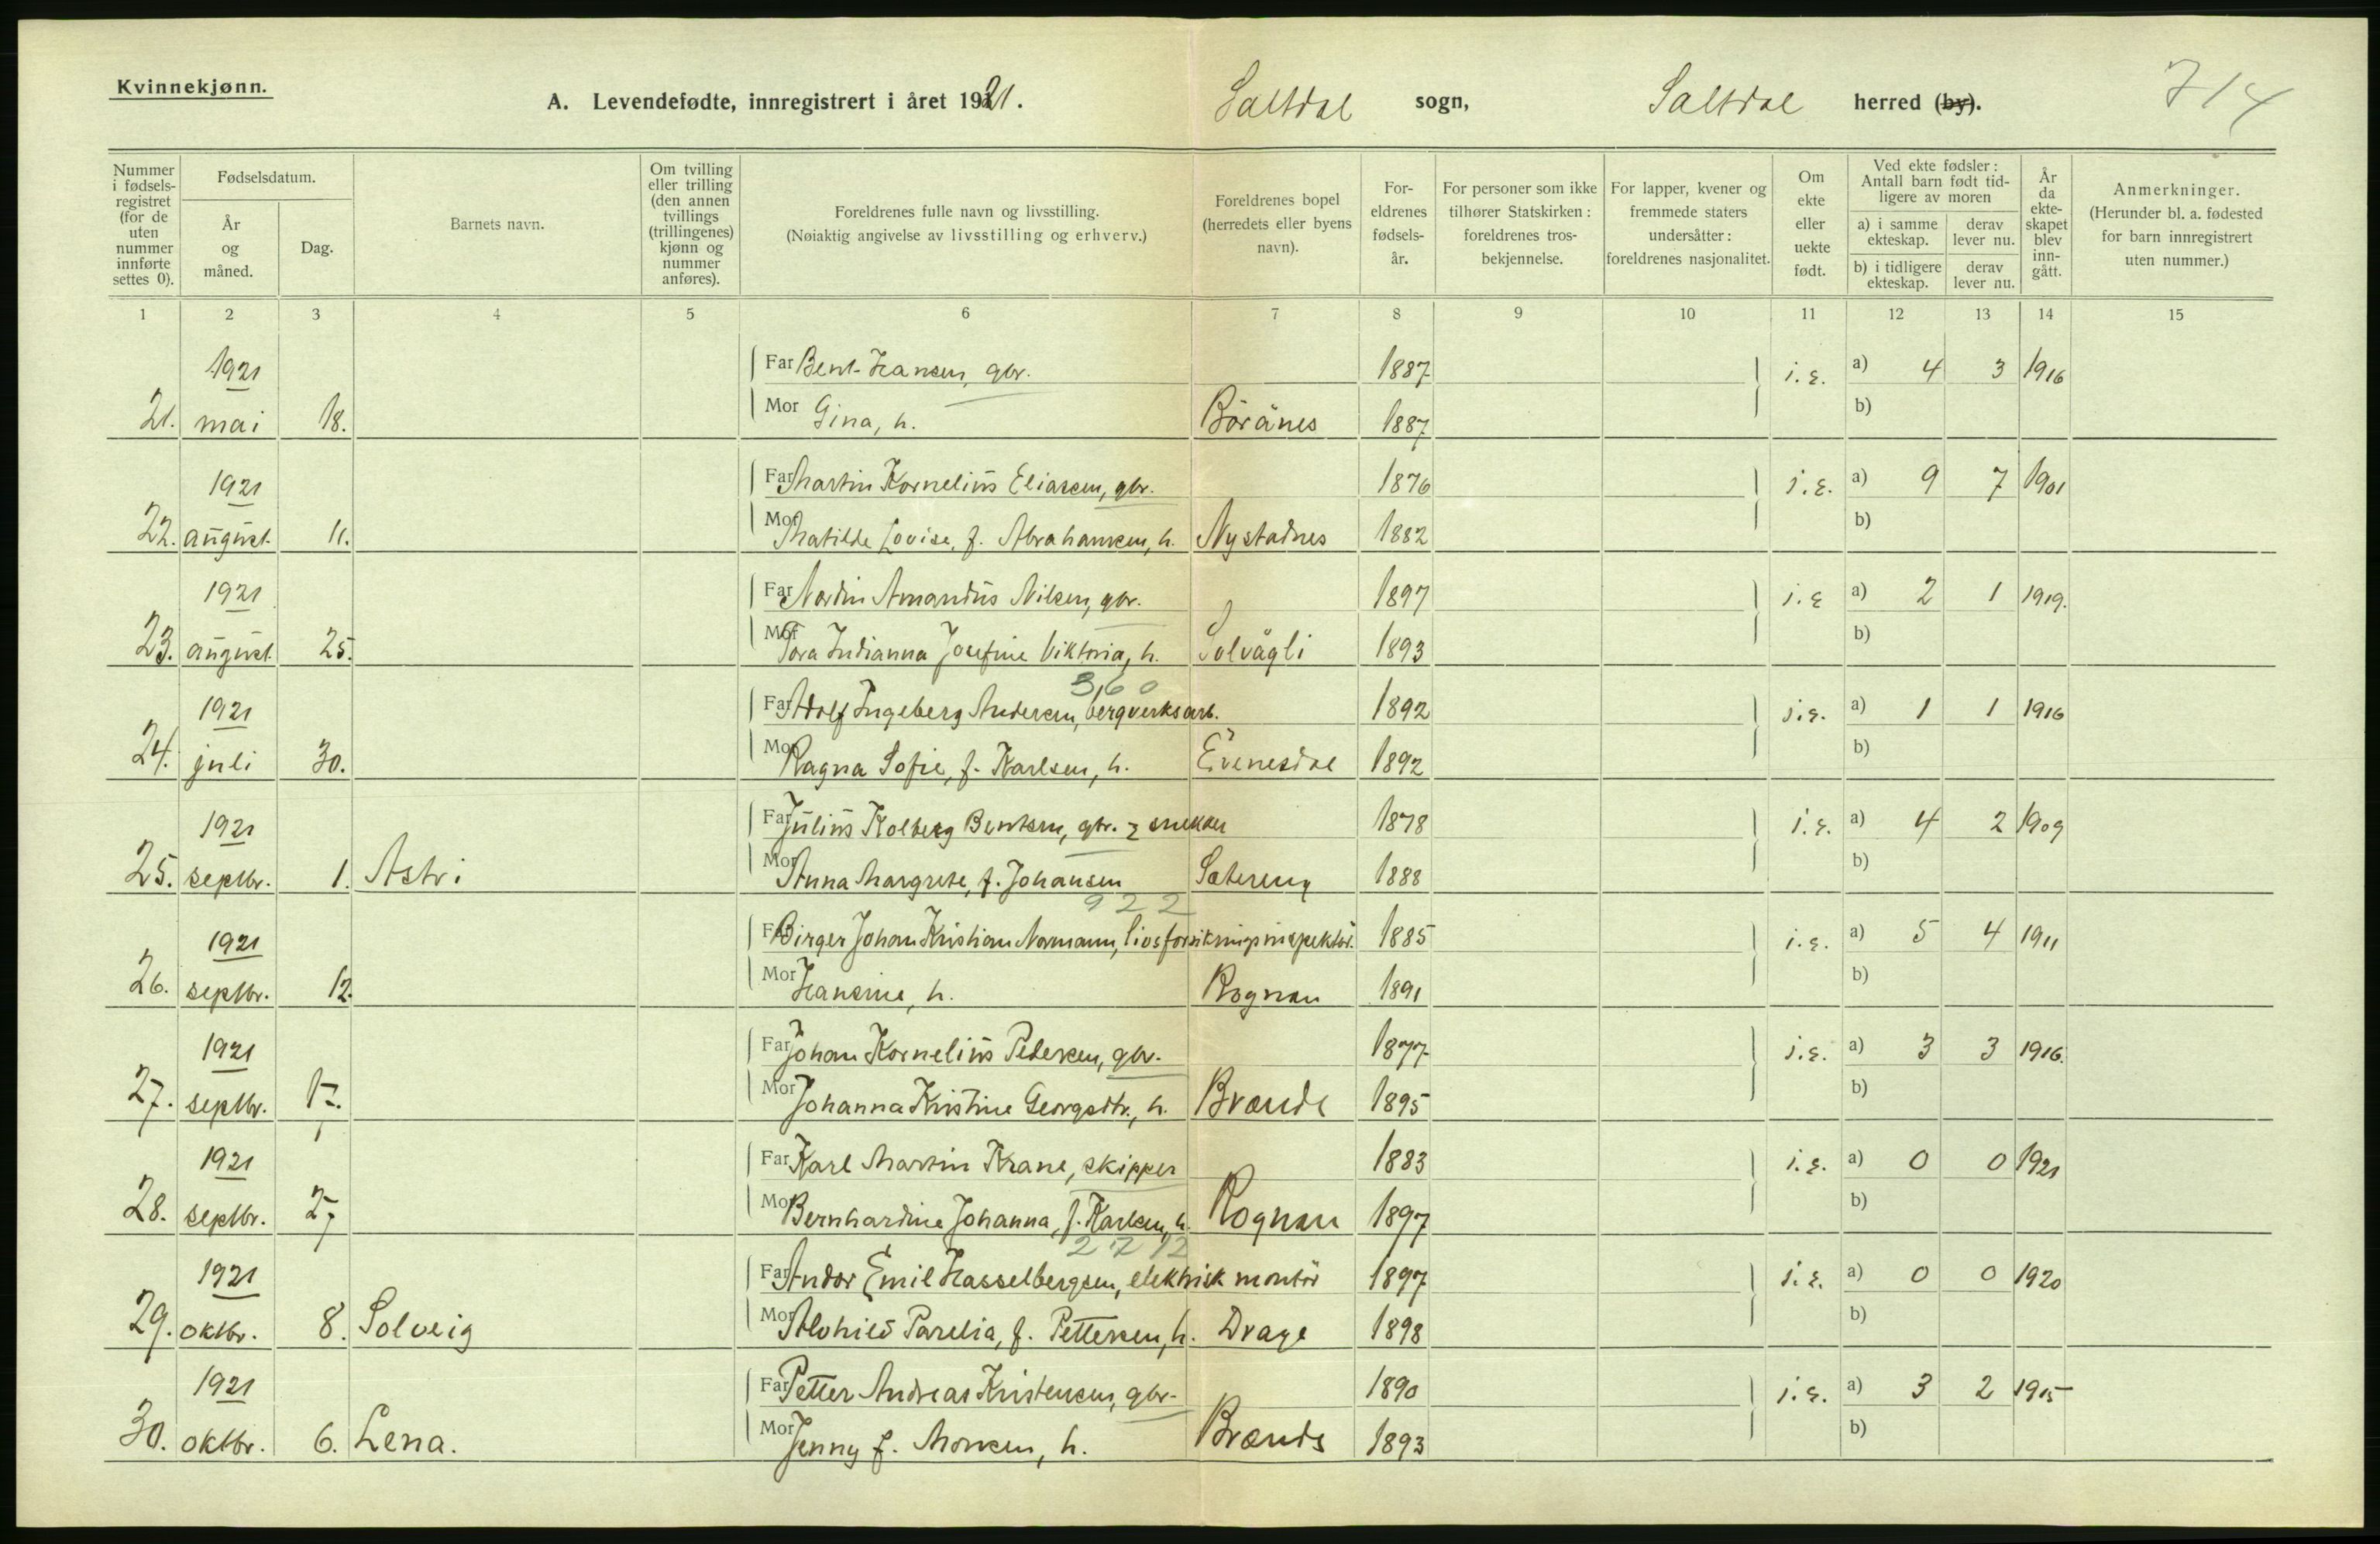 Kvinnekjønn.
A. Levendefødte, innregistrert i året 1921. Saltdal sogn, Saltdal herred (by). 714
Nummer i fødsels-registret (for de uten nummer innførte settes 0).
Fødselsdatum.
År og måned.
Dag.
Barnets navn.
Om tvilling eller trilling (den annen tvillings (trillingenes) kjønn og nummer anføres).
Foreldrenes fulle navn og livsstilling.
(Nøiaktig angivelse av livsstilling og erhverv.)
Foreldrenes bopel (herredets eller byens navn).
For-eldrenes fødsels-år.
For personer som ikke tilhører Statskirken: foreldrenes tros-bekjennelse.
For lapper, kvener og fremmede staters undersåtter: foreldrenes nasjonalitet.
Om ekte eller uekte født.
Ved ekte fødsler: Antall barn født tid-ligere av moren
a) i samme ekteskap.
derav lever nu.
b) i tidligere ekteskap.
derav lever nu.
År da ekte-skapet blev inn-gått.
Anmerkninger.
(Herunder bl. a. fødested for barn innregistrert uten nummer.)
1 2 3 4 5 6 7 8 9 10 11 12 13 14 15
1921 Far Bent Hansen, gbr. 1887 i.e. a) 4 3 1916
21. mai 18. Mor Gina, h. Böränes 1887 b)
1921 Far Martin Kornelius Eliassen, gbr. 1876 i.e. a) 9 7 1901
22. august 11. Mor Matilde Lovise, f. Abrahamsen, h. Nystadnes 1882 b)
1921 Far Nordin Amandus Nilsen, gbr. 1897 i.e a) 2 1 1919.
23. august 25. Mor Tora Indianna Josefine Viktoria, h. Solvågli 1893 b)
360
1921 Far Adolf Ingeberg Andersen, bergverksarb. 1892 i.e. a) 1 1 1916
24. juli 30. Mor Ragna Sofie, f. Karlsen, h. Evenesdal 1892 b)
1921 Far Julius Kolberg Bentsen, gbr. & snekker 1878 i.e. a) 4 2 1909
25. septbr. 1. Astri Mor Anna Margrete, f. Johansen Sætereng 1888 b)
922
1921 Far Birger Johan Kristian Normann, livsforsikringsinspektör. 1885 i.e. a) 5 4 1911
26. septbr. 12. Mor Hansine, h. Rognan 1891 b)
1921 Far Johan Kornelius Pedersen, gbr. 1877 i.e. a) 3 3 1916.
27. septbr. 17. Mor Johanna Kristine Georgsdtr., h. Brænde 1895 b)
1921 Far Karl Martin Krane, skipper 1883 i.e. a) 0 0 1921
28. septbr. 27 Mor Bernhardine Johanna, f. Karlsen, h. Rognan 1897 b)
2712
1921 Far Andor Emil Hasselbergsen, elektrisk montör 1897 i.e. a) 0 0 1920
29. oktbr. 8. Solveig Mor Alvhild Parelia, f. Pettersen, h. Drage 1898 b)
1921 Far Petter Andreas Kristensen, gbr. 1890 i.e. a) 3 2 1915
30. oktbr. 6. Lena. Mor Jenny f. Monsen, h. Brænde 1893 b)